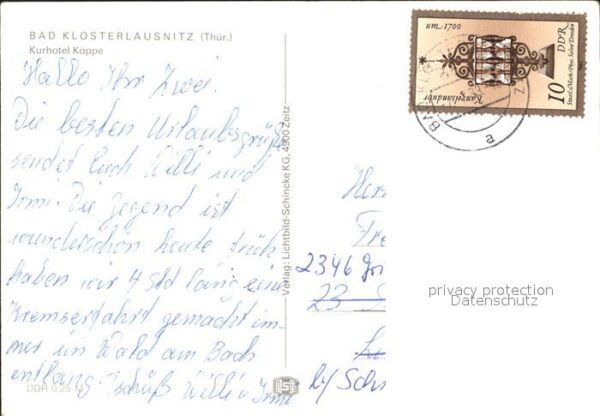 BAD KLOSTERLAUSNITZ (Thür.)
Kurhotel Köppe
Hallo Ihr Zwei.
Die besten Urlaubsgrüße
sendet Euch Willi und
Irmi. Die Gegend ist
wunderschön heute früh
haben wir 4 Std lang eine
Kremserfahrt gemacht im-
mer im Wald am Bach
entlang. Tschüß Willi u Irmi
DDR 0,25 M
Verlag: Lichtbild-Schincke KG, 4900 Zeitz
um. 1700
Kanzelsanduhr
10 DDR
Staatl. Math.-Phys. Salon Dresden
BAD
a
Her
Fre
2346
23
b/ Schm
privacy protection
Datenschutz